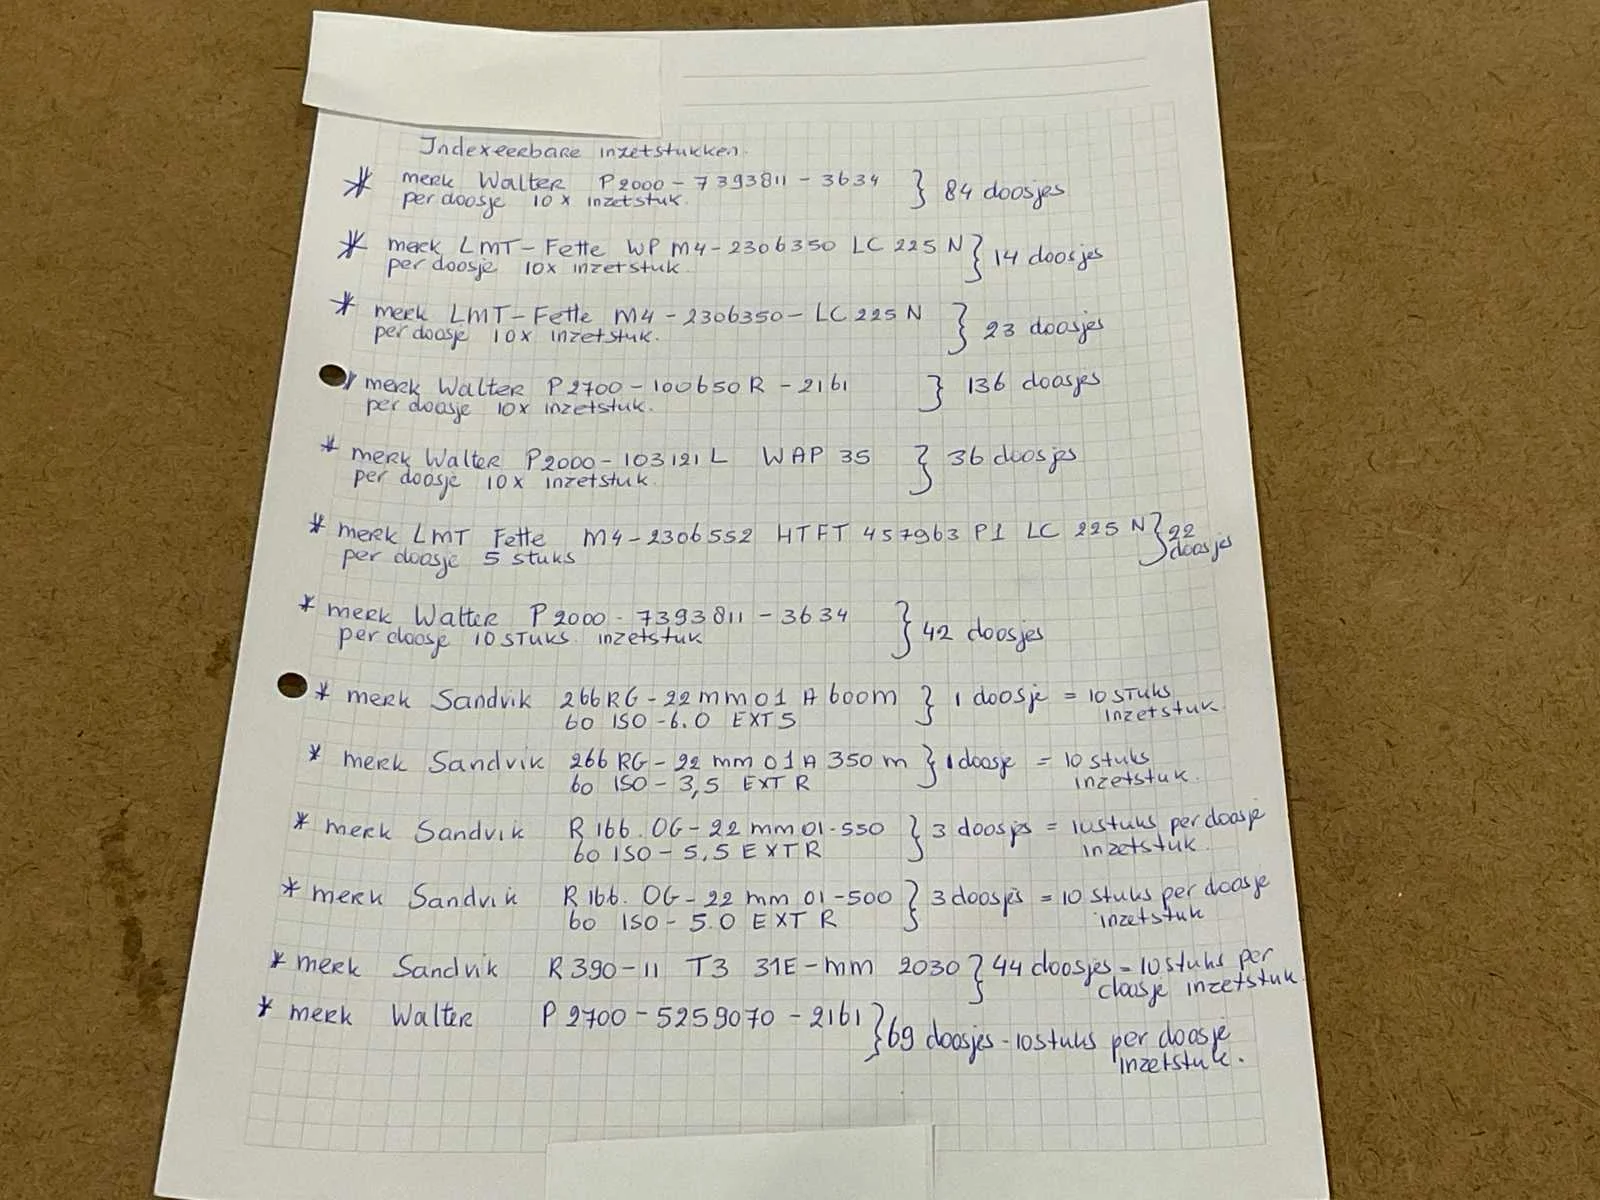 Indexeerbare inzetstukken.
* merk Walter P2000-7393811-3634 } 84 doosjes
per doosje 10x inzetstuk.
* merk LMT-Fette WP M4-2306350 LC 225 N } 14 doosjes
per doosje 10x inzetstuk.
* merk LMT-Fette M4-2306350-LC 225 N } 23 doosjes
per doosje 10x inzetstuk.
* merk Walter P2700-100650R-2161 } 136 doosjes
per doosje 10x inzetstuk.
* merk Walter P2000-103121L WAP 35 } 36 doosjes
per doosje 10x inzetstuk.
* merk LMT Fette M4-2306552 HTFT 457963 P1 LC 225 N } 22 doosjes
per doosje 5 stuks
* merk Walter P2000-7393811-3634 } 42 doosjes
per doosje 10 stuks inzetstuk
* merk Sandvik 266RG-22mm01 A 600m } 1 doosje = 10 stuks
60 ISO-6.0 EXTS inzetstuk.
* merk Sandvik 266RG-22mm01A 350m } 1 doosje = 10 stuks
60 ISO-3,5 EXTR inzetstuk.
* merk Sandvik R166.OG-22mm01-550 } 3 doosjes = 10 stuks per doosje
60 ISO-5,5 EXTR inzetstuk.
* merk Sandvik R166.OG-22mm01-500 } 3 doosjes = 10 stuks per doosje
60 ISO-5.0 EXTR inzetstuk
* merk Sandvik R390-11 T3 31E-mm 2030 } 44 doosjes = 10 stuks per
doosje inzetstuk.
* merk Walter P2700-5259070-2161 } 69 doosjes - 10 stuks per doosje
inzetstuk.